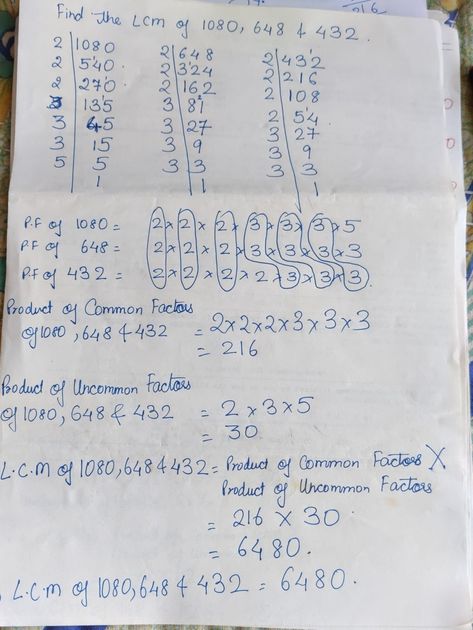 216
Find The LCM of 1080, 648 & 432.
2 | 1080   2 | 648   2 | 432
2 | 540   2 | 324   2 | 216
2 | 270   2 | 162   2 | 108
3 | 135   3 | 81   2 | 54
3 | 45   3 | 27   3 | 27
3 | 15   3 | 9   3 | 9
5 | 5   3 | 3   3 | 3
1   1   1
P.F of 1080 = 2 × 2 × 2 × 3 × 3 × 3 × 5
P.F of 648 = 2 × 2 × 2 × 3 × 3 × 3 × 3
P.F of 432 = 2 × 2 × 2 × 2 × 3 × 3 × 3.
Product of Common Factors
of 1080, 648 & 432 = 2×2×2×3×3×3
= 216
Product of Uncommon Factors
of 1080, 648 & 432 = 2 × 3 × 5
= 30
L.C.M of 1080, 648 & 432 = Product of Common Factors ×
Product of Uncommon Factors
= 216 × 30.
= 6480.
L.C.M of 1080, 648 & 432 = 6480.